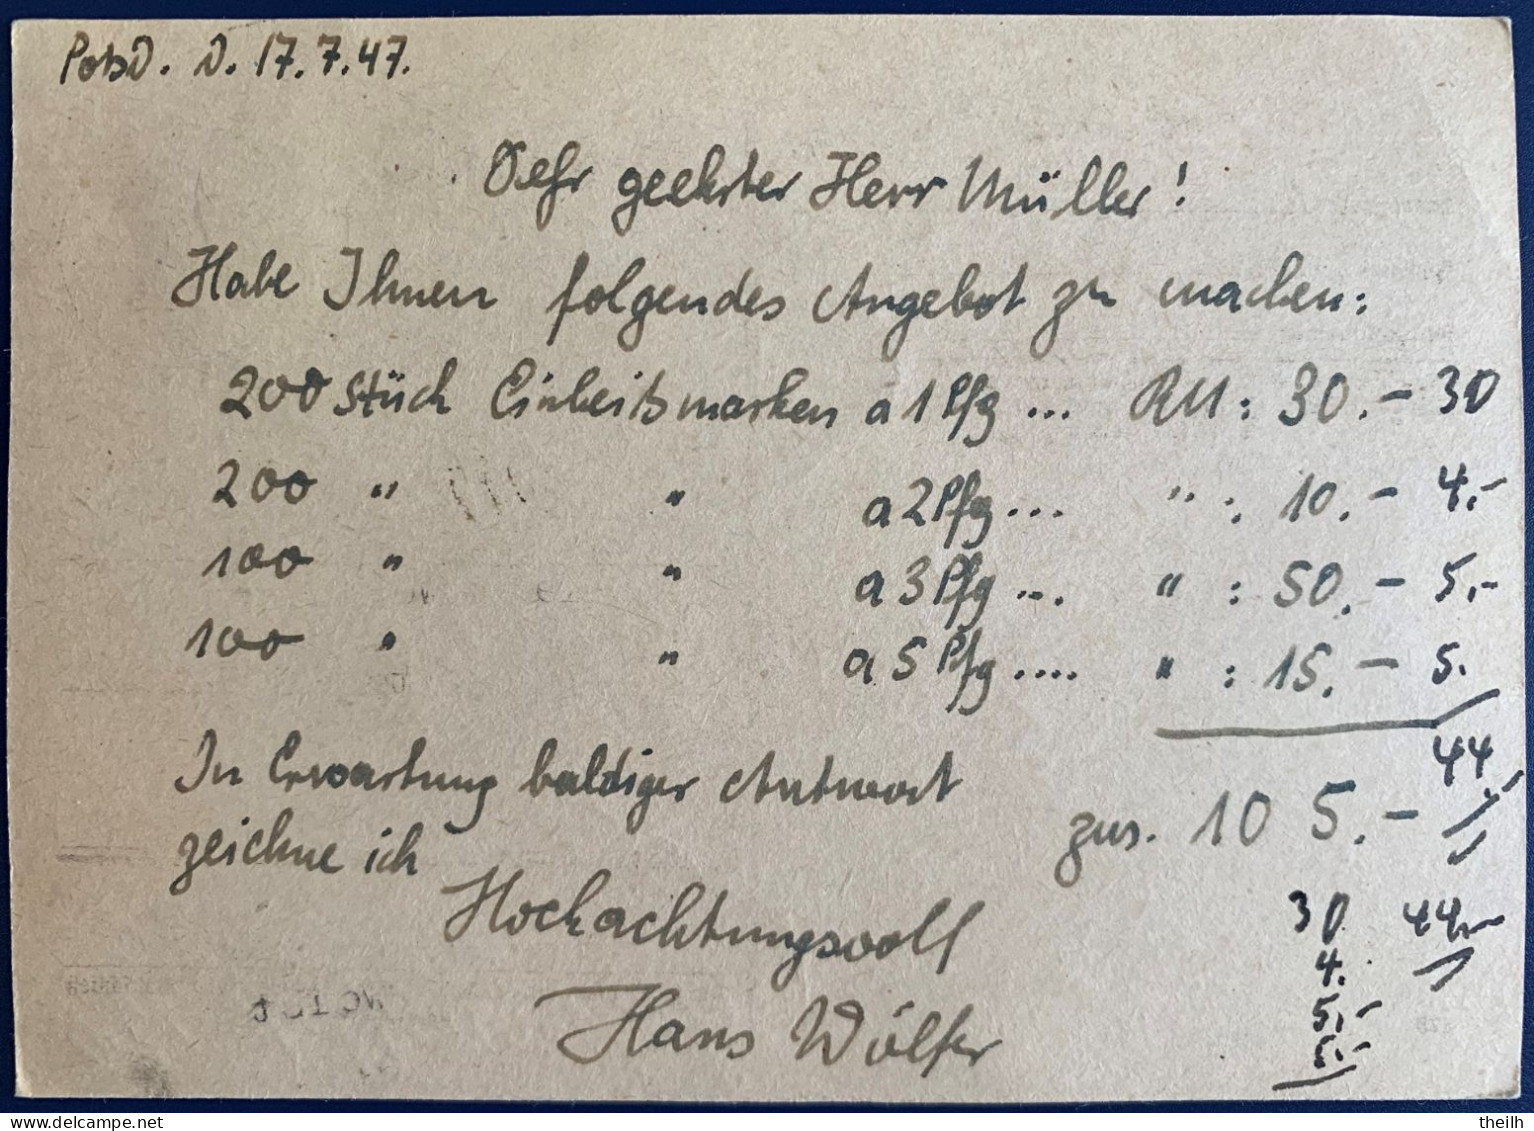 Potsd. d. 17.7.47.
Sehr geehrter Herr Müller!
Habe Ihnen folgendes Angebot zu machen:
200 Stück Einheitsmarken a 1 Pfg ... RM : 30.- 30
200 " " a 2 Pfg ... " : 10.- 4.-
100 " " a 3 Pfg ... " : 50.- 5.-
100 " " a 5 Pfg .... " : 15.- 5.
44
In Erwartung baldiger Antwort
zus. 105.-
zeichne ich
Hochachtungsvoll
30 44.-
4.
Hans Wölfer
5.-
theilh